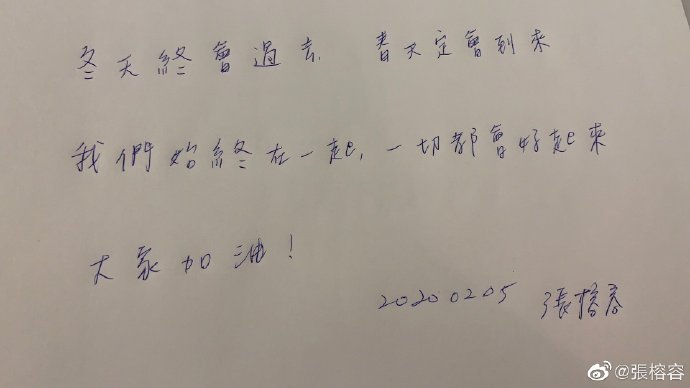 冬天終會過去 春天定會到來
我們始終在一起,一切都會好起來
大家加油!
20200205 張榕容
@張榕容